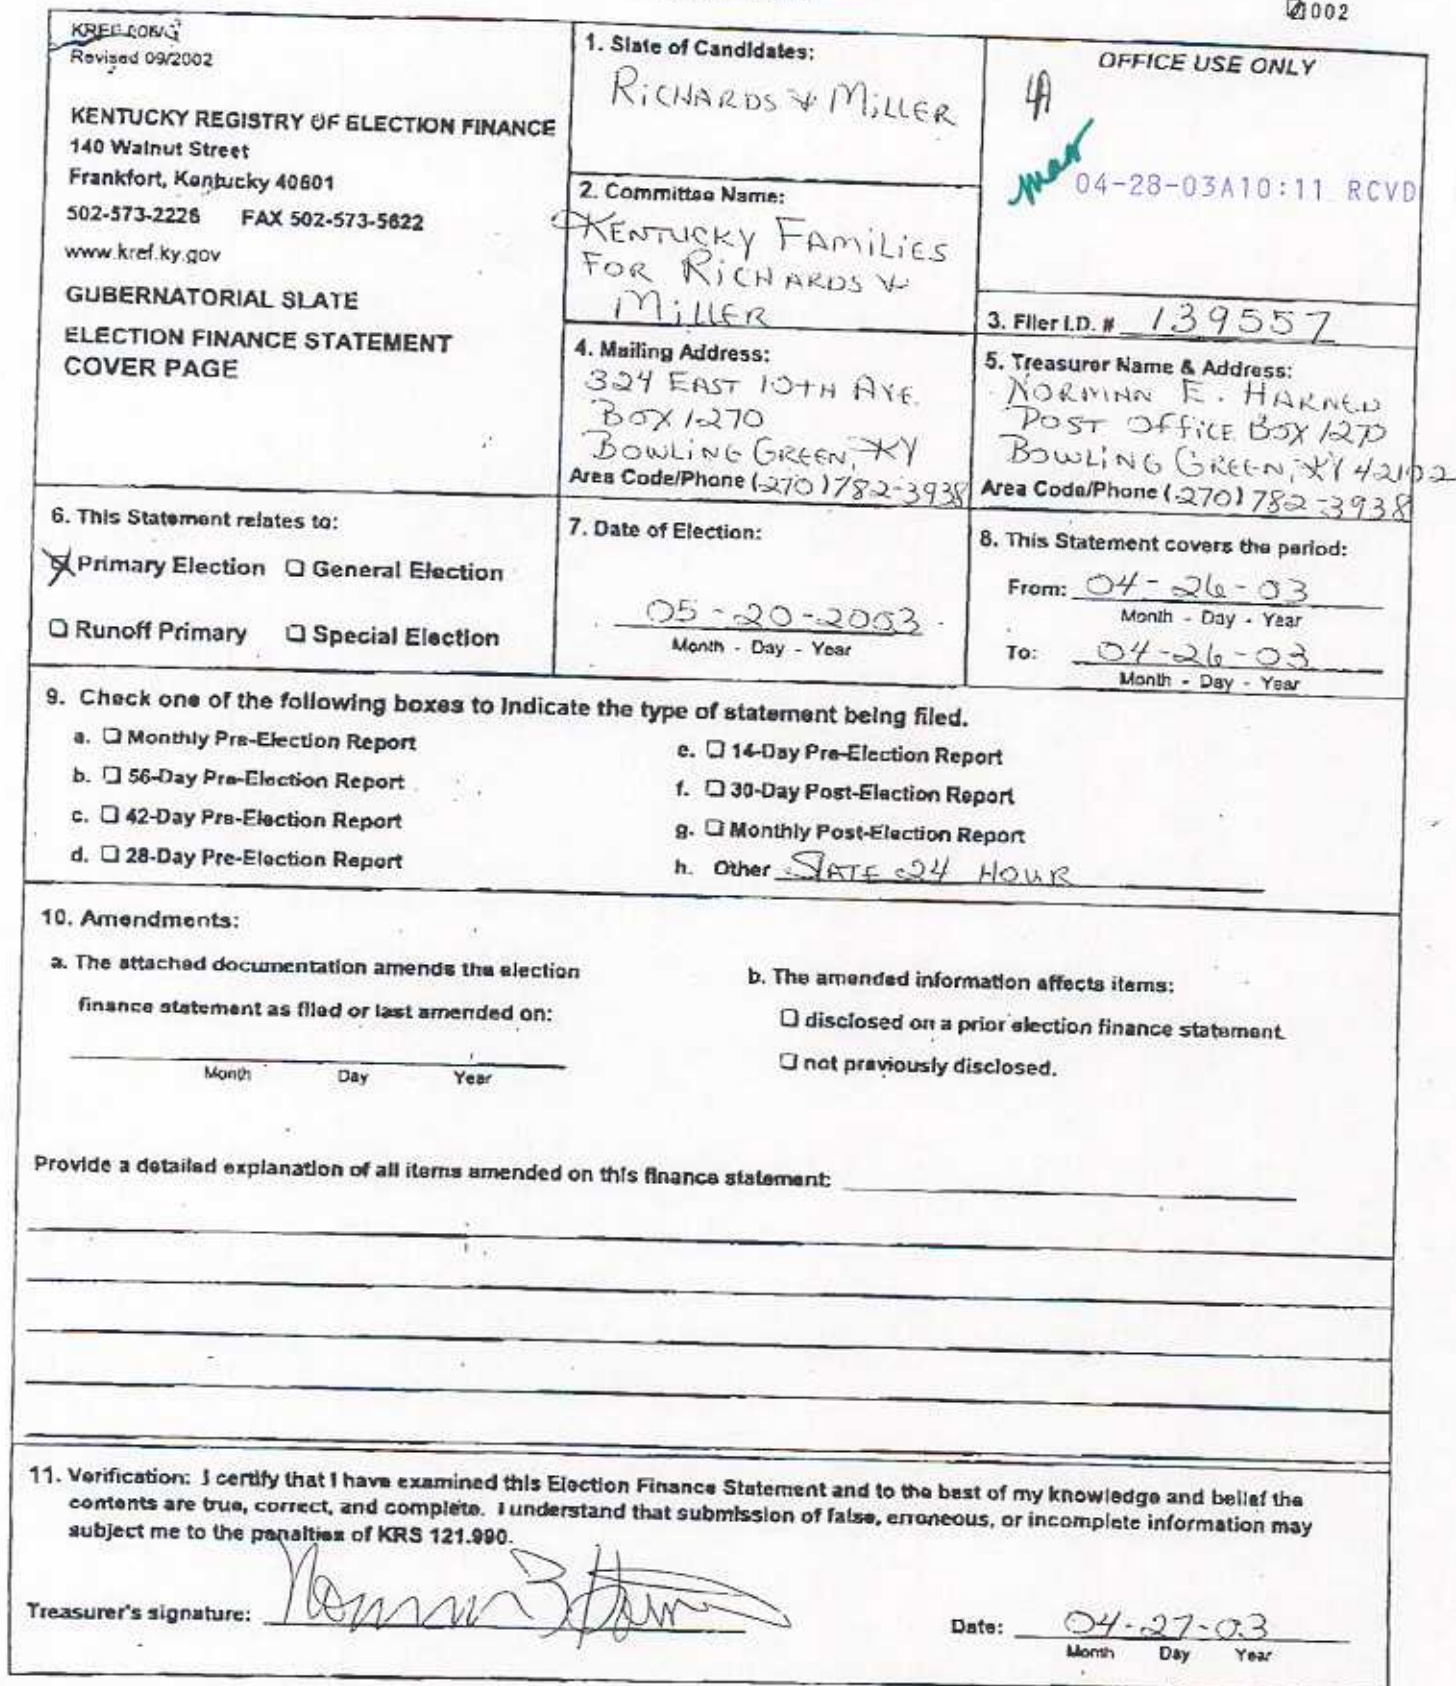 002
KREF 006/G
Revised 09/2002
KENTUCKY REGISTRY OF ELECTION FINANCE
140 Walnut Street
Frankfort, Kentucky 40601
502-573-2226 FAX 502-573-5622
www.kref.ky.gov
GUBERNATORIAL SLATE
ELECTION FINANCE STATEMENT
COVER PAGE
1. Slate of Candidates:
RICHARDS & MILLER
OFFICE USE ONLY
04-28-03A10:11 RCVD
2. Committee Name:
KENTUCKY FAMILIES
FOR RICHARDS &
MILLER
3. Filer I.D. # 139557
4. Mailing Address:
324 EAST 10TH AVE.
BOX 1270
BOWLING GREEN, KY
Area Code/Phone (270) 782-3938
5. Treasurer Name & Address:
NORMAN E. HARNED
POST OFFICE BOX 1270
BOWLING GREEN, KY 42102
Area Code/Phone (270) 782-3938
6. This Statement relates to:
Primary Election General Election
Runoff Primary Special Election
7. Date of Election:
05-20-2003
Month - Day - Year
8. This Statement covers the period:
From: 04-26-03
Month - Day - Year
To: 04-26-03
Month - Day - Year
9. Check one of the following boxes to indicate the type of statement being filed.
a. Monthly Pre-Election Report
b. 56-Day Pre-Election Report
c. 42-Day Pre-Election Report
d. 28-Day Pre-Election Report
e. 14-Day Pre-Election Report
f. 30-Day Post-Election Report
g. Monthly Post-Election Report
h. Other SLATE 24 HOUR
10. Amendments:
a. The attached documentation amends the election
finance statement as filed or last amended on:
Month Day Year
b. The amended information affects items:
disclosed on a prior election finance statement.
not previously disclosed.
Provide a detailed explanation of all items amended on this finance statement:
11. Verification: I certify that I have examined this Election Finance Statement and to the best of my knowledge and belief the
contents are true, correct, and complete. I understand that submission of false, erroneous, or incomplete information may
subject me to the penalties of KRS 121.990.
Treasurer's signature:
Date: 04-27-03
Month Day Year